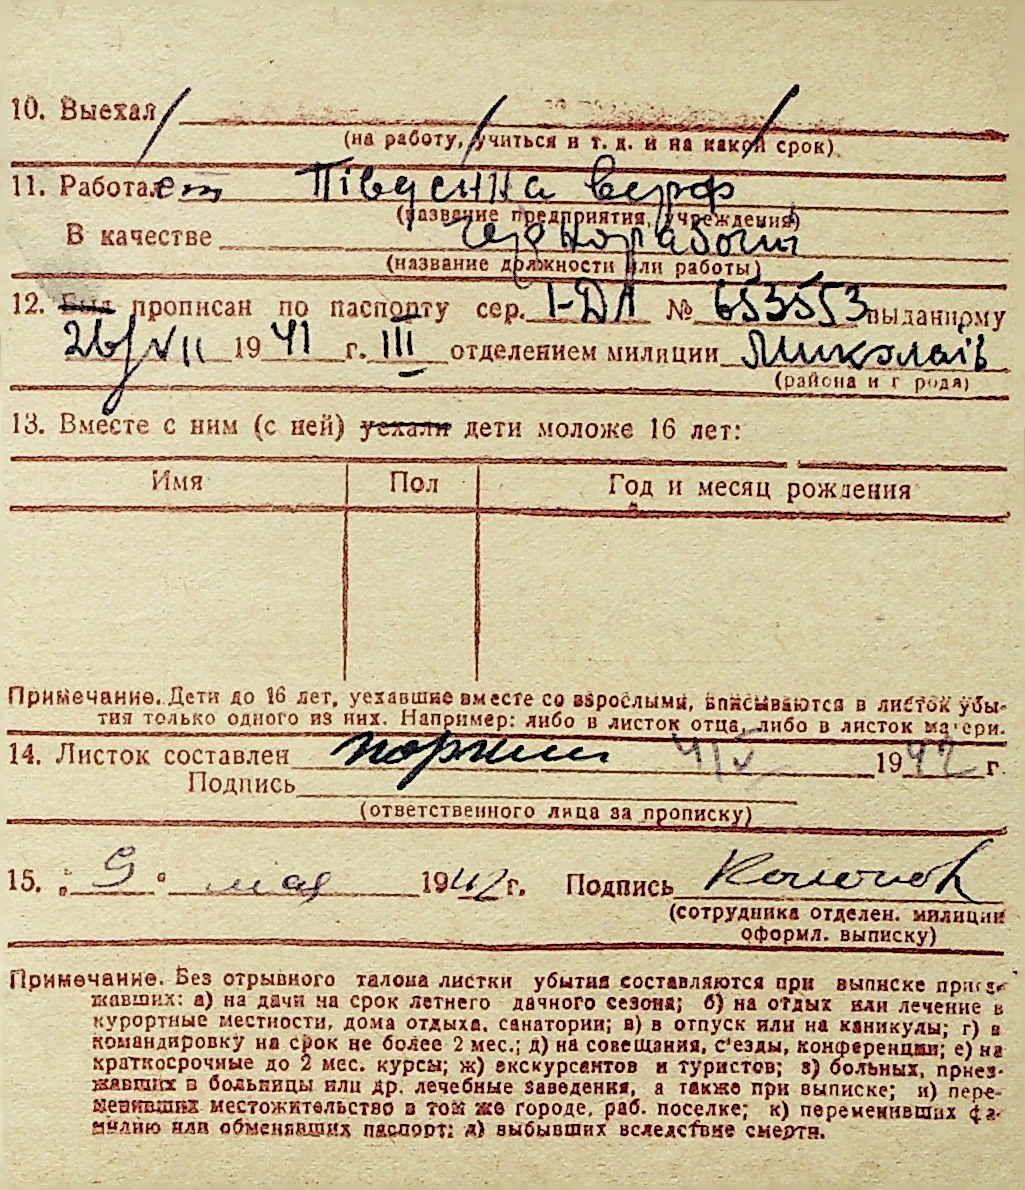 10. Выехал
(на работу, учиться и т. д. и на какой срок)
11. Работает Південна верф
(название предприятия, учреждения)
В качестве чернорабочий
(название должности или работы)
12. Был прописан по паспорту сер. I-ДЛ № 653553 выданному
26/VII 1941 г. III отделением милиции Миколаїв
(района и г рода)
13. Вместе с ним (с ней) уехали дети моложе 16 лет:
Имя Пол Год и месяц рождения
Примечание. Дети до 16 лет, уехавшие вместе со взрослыми, вписываются в листок убы-
тия только одного из них. Например: либо в листок отца, либо в листок матери.
14. Листок составлен 4/V 1942 г.
Подпись
(ответственного лица за прописку)
15. „ 9 " мая 1942 г. Подпись
(сотрудника отделен. милиции
оформл. выписку)
Примечание. Без отрывного талона листки убытия составляются при выписке приез-
жавших: а) на дачи на срок летнего дачного сезона; б) на отдых или лечение в
курортные местности, дома отдыха, санатории; в) в отпуск или на каникулы; г) в
командировку на срок не более 2 мес.; д) на совещания, с'езды, конференции; е) на
краткосрочные до 2 мес. курсы; ж) экскурсантов и туристов; з) больных, приез-
жавших в больницы или др. лечебные заведения, а также при выписке; и) пере-
менивших местожительство в том же городе, раб. поселке; к) переменивших фа-
милию или обменявших паспорт; л) выбывших вследствие смерти.